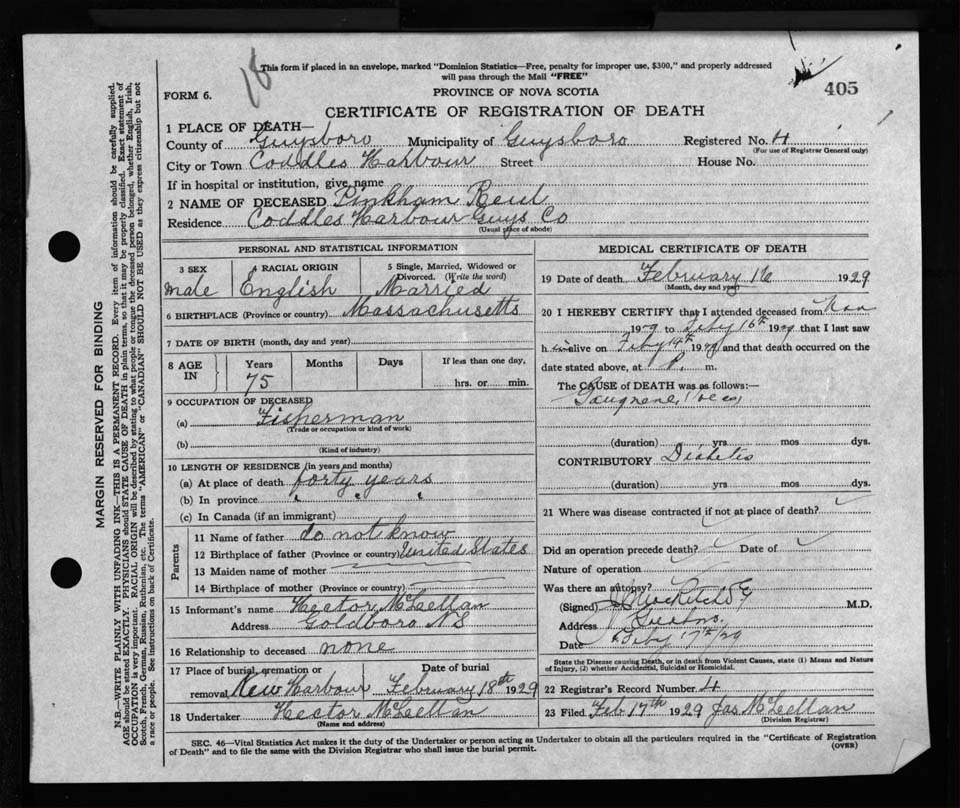 18
This form if placed in an envelope, marked "Dominion Statistics—Free, penalty for improper use, $300," and properly addressed
will pass through the Mail "FREE"
405
FORM 6.
PROVINCE OF NOVA SCOTIA
CERTIFICATE OF REGISTRATION OF DEATH
1 PLACE OF DEATH—
County of Guysboro Municipality of Guysboro Registered No. 4
(For use of Registrar General only)
City or Town Coddles Harbour Street House No.
If in hospital or institution, give name
2 NAME OF DECEASED Pinkham
Residence Coddles Harbour Guys Co
(Usual place of abode)
PERSONAL AND STATISTICAL INFORMATION
3 SEX 4 RACIAL ORIGIN 5 Single, Married, Widowed or
Divorced. (Write the word)
male English Married
6 BIRTHPLACE (Province or country) Massachusetts
7 DATE OF BIRTH (month, day and year)
8 AGE IN Years Months Days If less than one day,
75 hrs. or min.
9 OCCUPATION OF DECEASED
(a) Fisherman
(Trade or occupation or kind of work)
(b)
(Kind of industry)
10 LENGTH OF RESIDENCE (in years and months)
(a) At place of death forty years
(b) In province " " "
(c) In Canada (if an immigrant)
Parents
11 Name of father do not know
12 Birthplace of father (Province or country) United States
13 Maiden name of mother
14 Birthplace of mother (Province or country)
15 Informant's name Hector McLellan
Address Goldboro NS
16 Relationship to deceased none
17 Place of burial, cremation or Date of burial
removal New Harbour February 18th 1929
18 Undertaker Hector McLellan
(Name and address)
MEDICAL CERTIFICATE OF DEATH
19 Date of death February 16 1929
(Month, day and year)
20 I HEREBY CERTIFY that I attended deceased from
1929 to Feby 16th 1929 that I last saw
h im alive on Feby 1929 and that death occurred on the
date stated above, at P. m.
The CAUSE of DEATH was as follows:—
Gangrene
(duration) yrs mos dys.
CONTRIBUTORY Diabetis
(duration) yrs mos dys.
21 Where was disease contracted if not at place of death?
Did an operation precede death? Date of
Nature of operation
Was there an autopsy?
(Signed) M.D.
Address
Date Feby 17th/29
State the Disease causing Death, or in death from Violent Causes, state (1) Means and Nature
of Injury, (2) whether Accidental, Suicidal or Homicidal.
22 Registrar's Record Number 4
23 Filed Feb 17th 1929 Jas McLellan
(Division Registrar)
SEC. 46—Vital Statistics Act makes it the duty of the Undertaker or person acting as Undertaker to obtain all the particulars required in the "Certificate of Registration
of Death" and to file the same with the Division Registrar who shall issue the burial permit.
(OVER)
MARGIN RESERVED FOR BINDING
N.B—WRITE PLAINLY WITH UNFADING INK—THIS IS A PERMANENT RECORD. Every item of information should be carefully supplied.
AGE should be stated EXACTLY. PHYSICIANS should STATE CAUSE OF DEATH in plain terms, so that it may be properly classified. Exact statement of
OCCUPATION is very important. RACIAL ORIGIN will be described by stating to what people or tongue the deceased person belonged, whether English, Irish,
Scotch, French, German, Russian, Ruthenian, etc. The terms "AMERICAN" or "CANADIAN" SHOULD NOT BE USED as they express citizenship but not
a race or people. See instructions on back of Certificate.